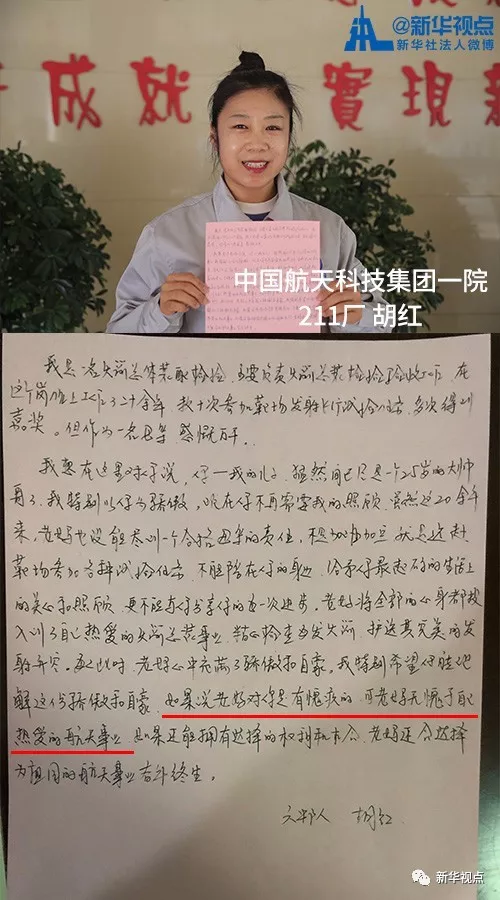 @新华视点
新华社法人微博
成就 實現新
中国航天科技集团一院
211厂 胡红
我是一名火箭总体装配检验，主要负责火箭总装检验验收工作，在
这个岗位上工作了二十余年，数十次参加靶场发射飞行试验任务，多次得到
嘉奖。但作为一名母亲感慨万千。
我想在这里对你说，仔—我的儿子，猛然间已是一个25岁的大帅
哥了，我特别以你为骄傲，现在你不再需要我的照顾，虽然这20余年
来，老妈也没能尽到一个合格母亲的责任，不是加班加点就是远赴
靶场参加各种试验任务，不能陪在你的身边，给予你最起码的生活上
的关心和照顾，更不能与你分享你的每一次进步。老妈将全部的心身都投
入到了自己热爱的火箭总装事业，精心检查每发火箭，护送其完美的发
射升空。每到此时，老妈心中充满了骄傲和自豪。我特别希望你能理
解这份骄傲和自豪，如果说老妈对你是有愧疚的，可老妈无愧于自己
热爱的航天事业，如果还能拥有选择的权利和机会，老妈还会选择
为祖国的航天事业奋斗终生。
胡红
新华视点